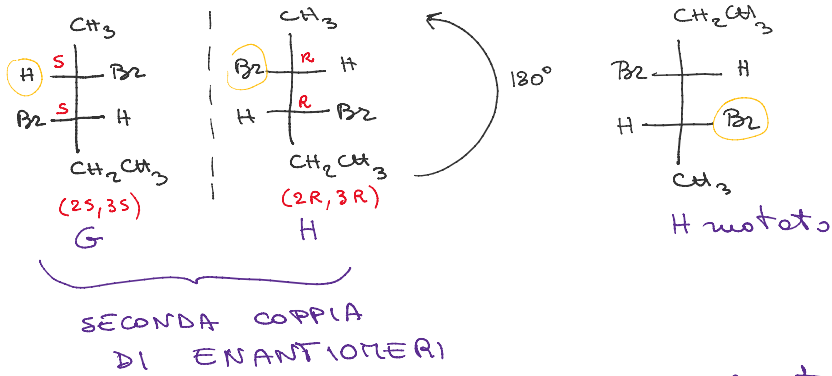 CH3
H S Br
Br S H
CH2CH3
(2S,3S)
G
CH3
Br R H
H R Br
CH2CH3
(2R,3R)
H
180°
CH2CH3
Br H
H Br
CH3
H ruotato
SECONDA COPPIA
DI ENANTIOMERI